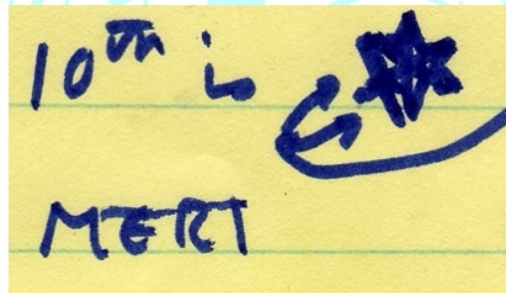 10th is
MERT